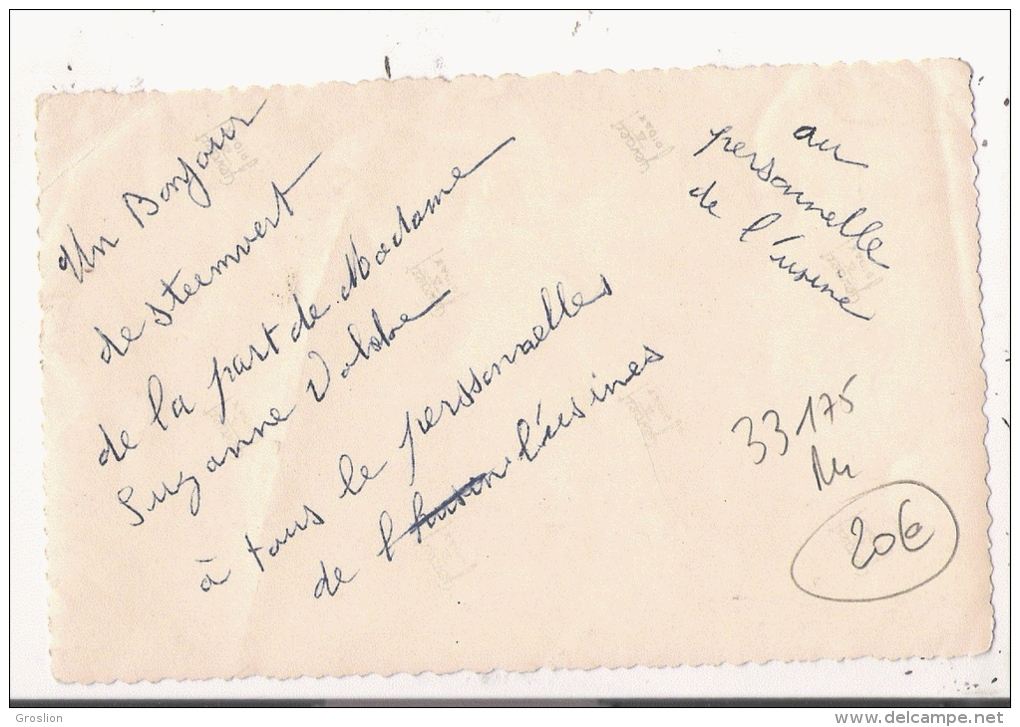 Un Bonjour
de Steenwert
de la part de Madame
Suzanne
à tous le perssonnelles
de l' l'éusines
au
personnelle
de l'usine
33175
20€
Groslion
www.delcampe.net